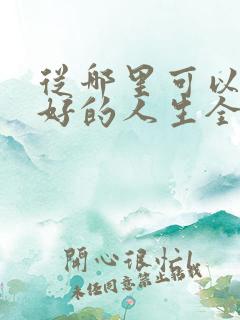 從哪里可以
好的人生全
開心很忙
未经同意禁止转载